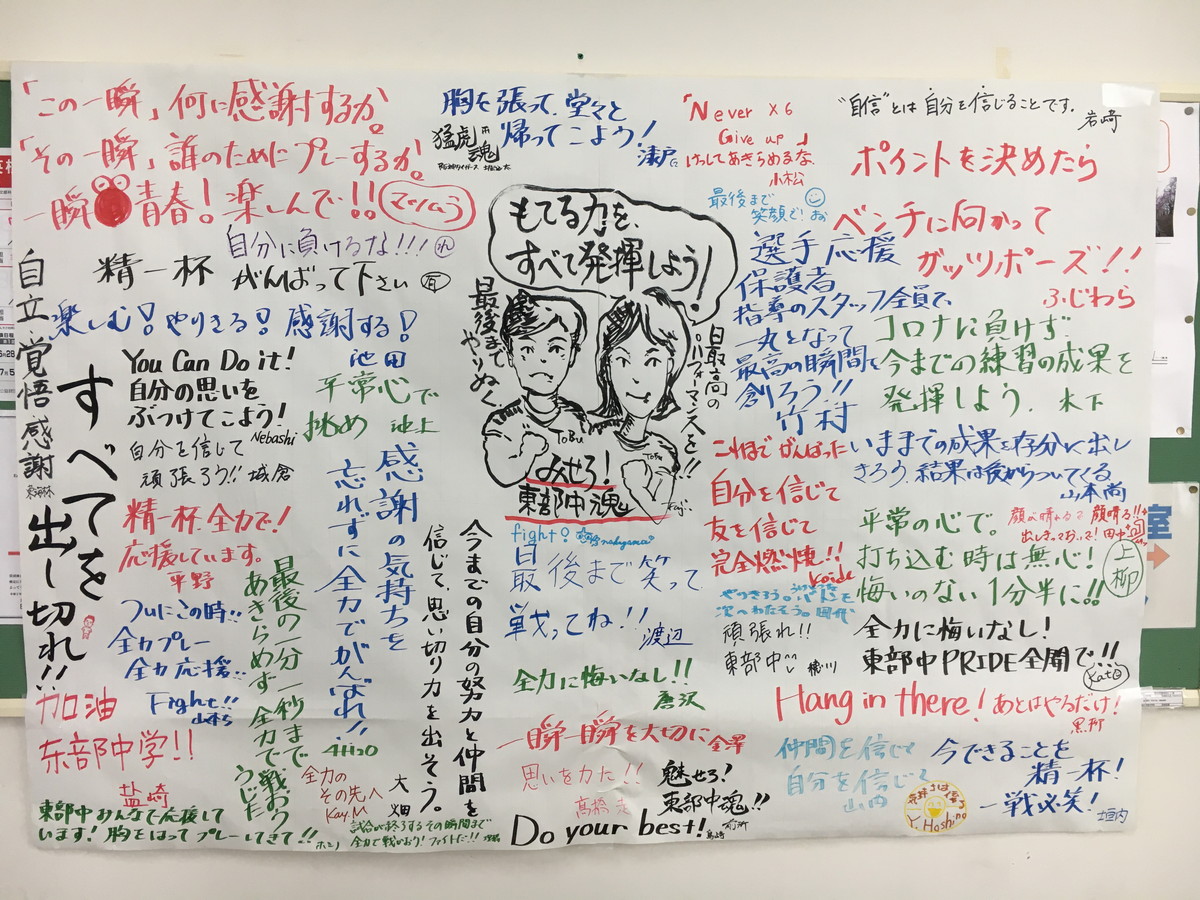 「この一瞬」何に感謝するか。
「その一瞬」誰のためにプレーするか。
一瞬
青春!楽しんで!!
胸を張って、堂々と
帰ってこよう!
猛虎魂
「Never×6
Give up」
けっしてあきらめるな
小松
"自信"とは自分を信じることです。
岩崎
ポイントを決めたら
ベンチに向かって
ガッツポーズ!!
ふじわら
最後まで
笑顔で!
自分に負けるな!!!
精一杯 がんばって下さい
もてる力を、
すべて発揮しよう!
最後まで
やりぬく
日最高の
パフォーマンスを!!
ToBu
ToBu
みせろ!
東部中魂
選手 応援
保護者
指導のスタッフ全員で、
一丸となって
最高の瞬間を
創ろう!!
竹村
コロナに負けず
今までの練習の成果を
発揮しよう. 木下
自立 覚悟 感謝
楽しむ!やりきる!感謝する!
池田
すべてを
出し切れ!!
You Can Do it!
自分の思いを
ぶつけてこよう!
Nebashi
平常心で
挑め 池上
自分を信じて
頑張ろう!! 城倉
感謝の気持ちを
忘れずに全力でがんばれ!!
4H2O
精一杯、全力で!
応援しています。
平野
ついにこの時!!
全力プレー
全力応援!!
Fight!!
最後の一分一秒まで
あきらめず全力で戦おう
加油
东部中学!!
塩崎
東部中みんなで応援して
います!胸をはってプレーしてきて!!
全力の
その先へ
Kay.M
大畑
試合が終了するその瞬間まで
全力で戦おう!ファイトだ!!
今までの自分の努力と仲間を
信じて、思い切り力を出そう。
fight! nakayama
最後まで笑って
戦ってね!!
渡辺
全力に悔いなし!!
唐沢
一瞬一瞬を大切に
思いを力に!!
高橋
魅せろ!
東部中魂!!
Do your best!
これまでがんばった
自分を信じて
友を信じて
完全燃焼!!
Koide
頑張れ!!
東部中
いままでの成果を存分に出し
きろう。結果は後からついてくる
山本尚
平常の心で。
打ち込む時は無心!
悔いのない1分半に!!
上柳
顔が晴れるマデ 顔晴る!!
田中
全力に悔いなし!
東部中PRIDE全開で!!
Kato
Hang in there! あとはやるだけ!
黒柳
仲間を信じて
自分を信じて
山内
今できることを
精一杯!
一戦必笑!
垣内
Y.Hoshino
室